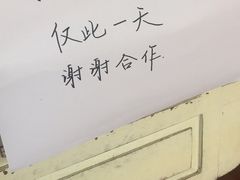 仅此一天
谢谢合作.